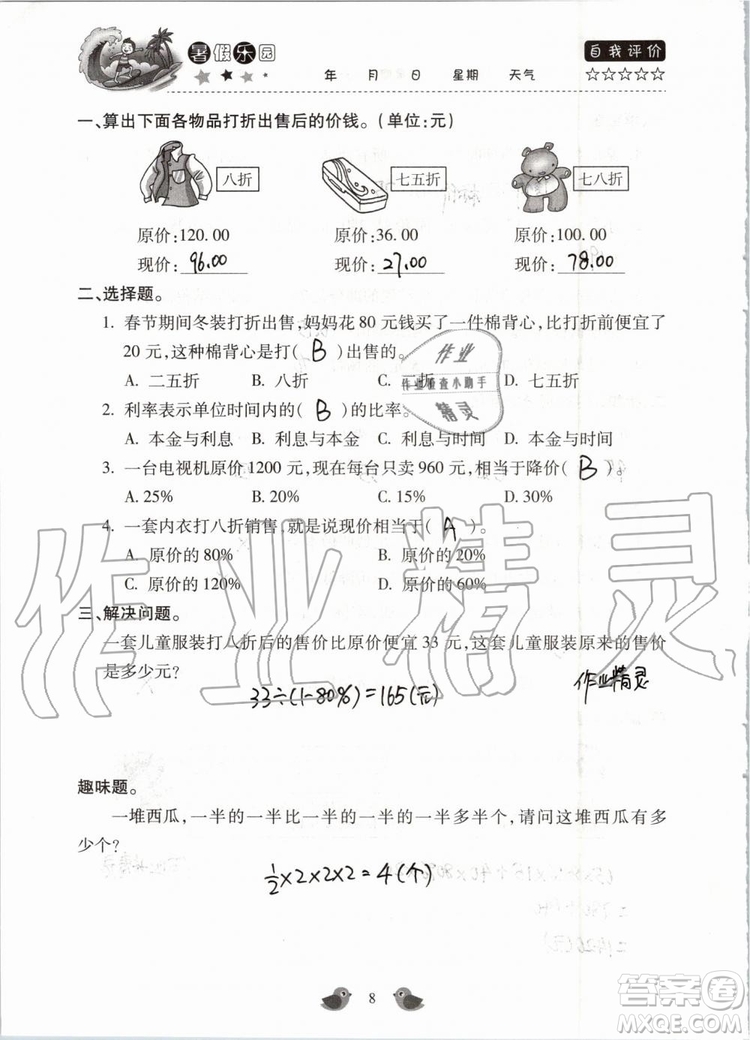 暑假乐园
自我评价
年 月 日 星期 天气
☆☆☆☆☆
一、算出下面各物品打折出售后的价钱。(单位:元)
八折 七五折 七八折
原价:120.00 原价:36.00 原价:100.00
现价: 96.00 现价: 27.00 现价: 78.00
二、选择题。
1. 春节期间冬装打折出售,妈妈花 80 元钱买了一件棉背心,比打折前便宜了
20 元,这种棉背心是打( B )出售的。
A. 二五折 B. 八折 C. 二折 D. 七五折
2. 利率表示单位时间内的( B )的比率。
A. 本金与利息 B. 利息与本金 C. 利息与时间 D. 本金与时间
3. 一台电视机原价 1200 元,现在每台只卖 960 元,相当于降价( B )
A. 25% B. 20% C. 15% D. 30%
4. 一套内衣打八折销售,就是说现价相当于( A )
A. 原价的80% B. 原价的20%
C. 原价的120% D. 原价的60%
三、解决问题。
一套儿童服装打八折后的售价比原价便宜 33 元,这套儿童服装原来的售价
是多少元?
33÷(1-80%)=165(元)
作业精灵
趣味题。
一堆西瓜,一半的一半比一半的一半的一半多半个,请问这堆西瓜有多
少个?
1/2×2×2×2=4(个)
8
作业
作业检查小助手
精灵
作业精灵
答案圈
MXQE.COM